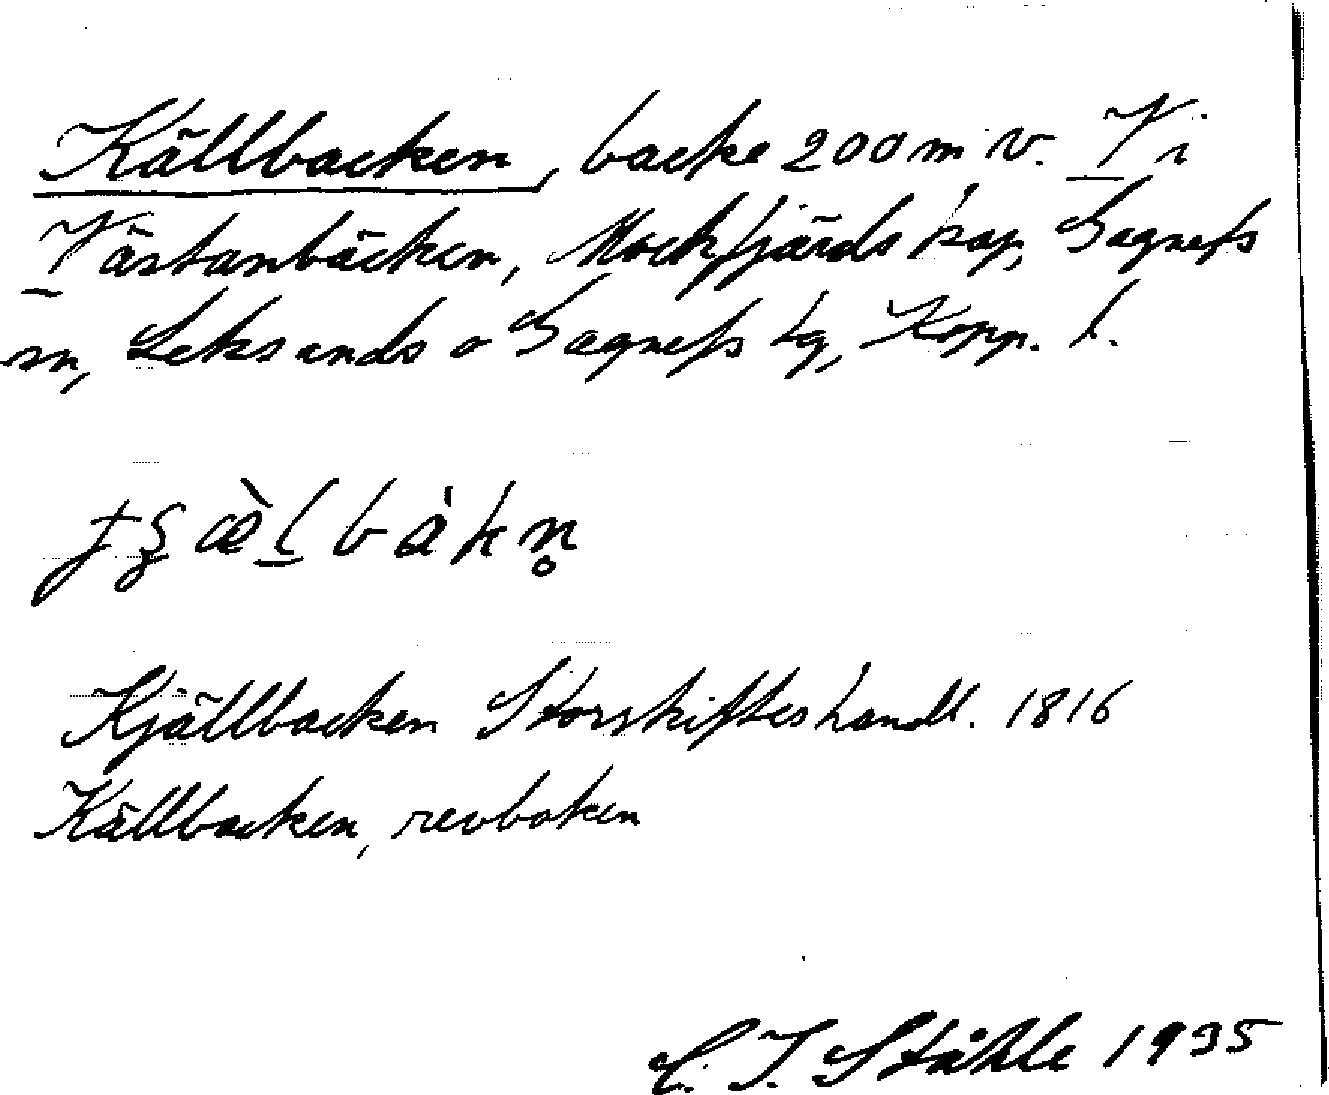 Källbacken, backe 200 m v. V i
Västanbäcken, Mockfjärds kap, Gagnefs
sn, Leksands o Gagnefs tg, Kopp. l.
bàkn̥
Kjällbacken Storskifteshandl. 1816
Källbacken, revboken
C. I. Ståhle 1935